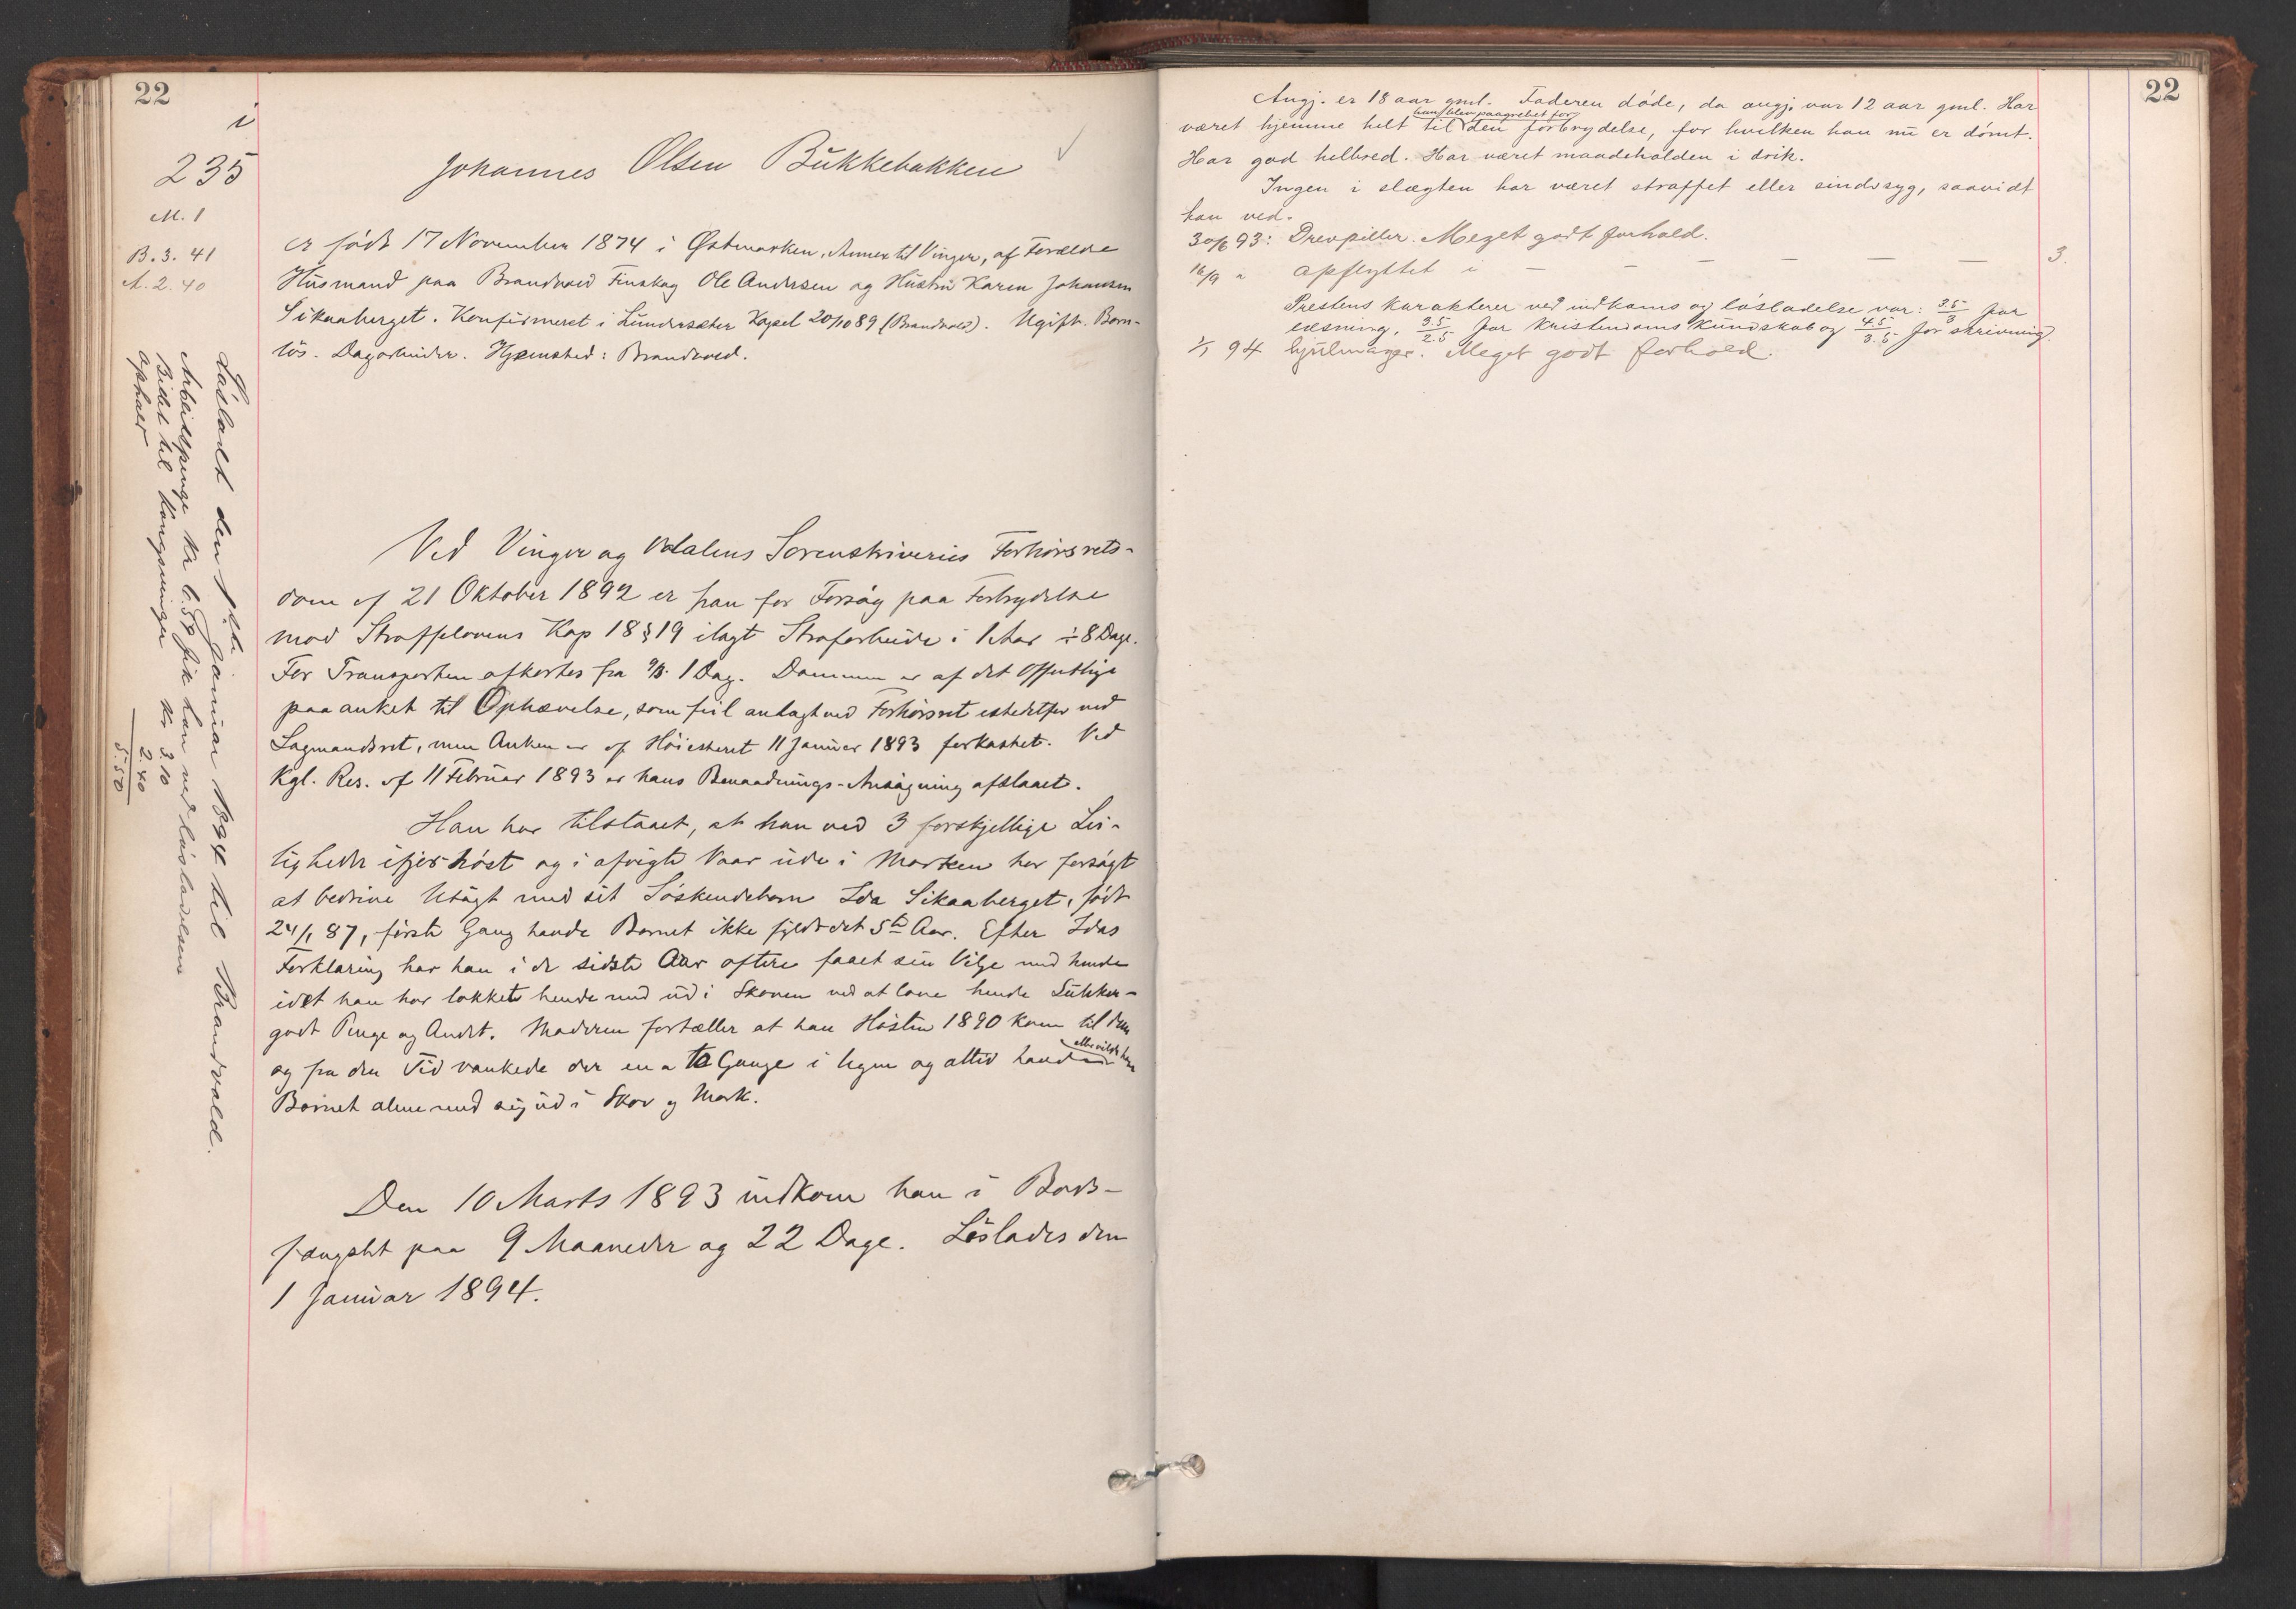 22
i
235
M. 1
B. 3. 41
A. 2. 40
Johannes Olsen Bukkebakken
er født 17 November 1874 i Østmarken, Annex til Vinger, af Forældre
Husmand paa Brandvold Finskog Ole Andersen og Hustru Karen Johansen
Sikaaberget. Konfirmeret i Lundersæter Kapel 20/10 89 (Brandvold). Ugift. Barn-
løs. Dagarbeider. Hjemsted: Brandvold.
Ved Vinger og Odalens Sorenskriveries Forhørsrets-
dom af 21 Oktober 1892 er han for Forsøg paa Forbrydelse
mod Straffelovens Kap 18 § 19 ilagt Strafarbeide i 1 Aar ÷ 8 Dage.
For Transporten afkortes fra 9/3. 1 Dag. Dommen er af det Offentlige
paaanket til Ophævelse, som feil anlagt ved Forhørsret istedetfor ved
Lagmandsret, men Anken er af Høiesteret 11 Januar 1893 forkastet. Ved
Kgl. Res. af 11 Februar 1893 er hans Benaadnings-Ansøgning afslaaet.
Han har tilstaaet, at han ved 3 forskjellige Lei-
ligheder ifjor høst og i afvigte Vaar ude i Marken har forsøgt
at bedrive Utugt med sit Søskendebarn Ida Sikaaberget, født
24/1 87, første Gang havde Barnet ikke fyldt det 5te Aar. Efter Idas
Forklaring har han i de sidste Aar oftere faaet sin Vilje med hende
idet han har lokket hende med ud i Skoven ved at love hende Sukker-
godt Penge og Andet. Moderen fortæller at han Høsten 1890 kom til dem
og fra den Tid vankede der en a to Gange i Ugen og altid havde eller vilde have
Barnet alene med sig ud i Skov og Mark.
Den 10 Marts 1893 indkom han i Bods-
fængslet paa 9 Maaneder og 22 Dage. Løslades den
1 Januar 1894.
Løsladt den 1ste Januar 1894 til Brandvold.
Arbeidspenge Kr 6.58 fik han ved løsladelsen
Bidrag til Kr. 3.10
2.40
5.50
22
Angj. er 18 aar gml. Faderen døde, da angj. var 12 aar gml. Har
været hjemme helt til han blev paagrebet for den forbrydelse, for hvilken han nu er dømt.
Har god helbred. Har været maadeholden i drik.
Ingen i slægten har været straffet eller sindssyg, saavidt
han ved.
30/6 93: Drevpiller. Meget godt forhold.
16/9 " opflyttet i — — — — — — 3.
Prestens karakterer ved indkomst og løsladelse var: 3.5/3 for
læsning, 3.5/2.5 for kristendoms kundskab og 4.5/3.5 for skrivning.
1/1 94 hjulmager. Meget godt forhold.